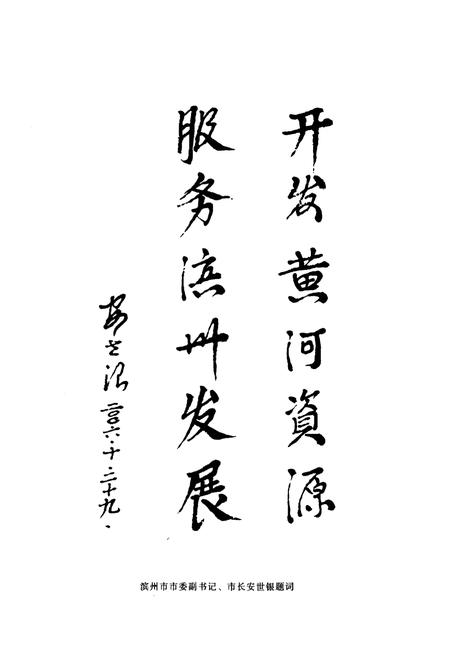 开发黄河資源
服务滨州发展
安世银 二〇〇六·十·二十九·
滨州市市委副书记、市长安世银题词